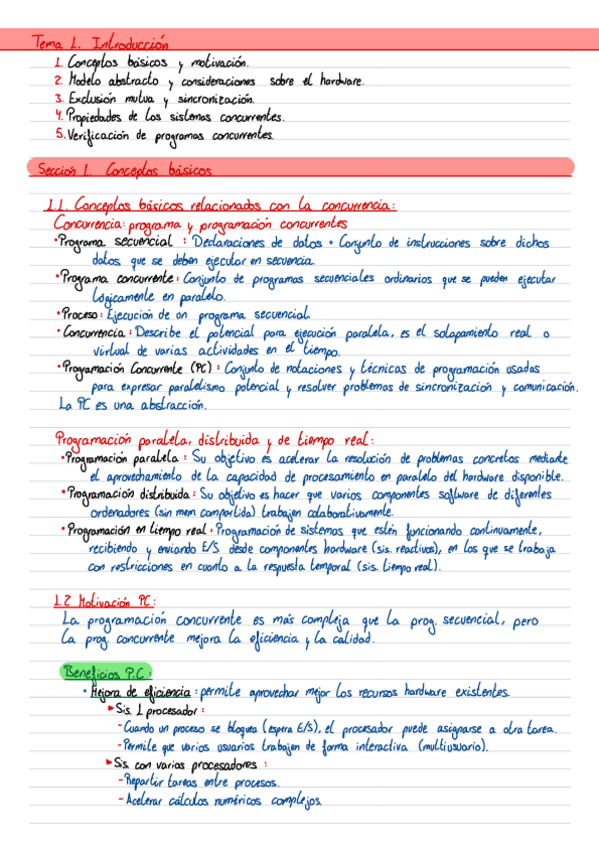 Tema 1. Introducción
1. Conceptos básicos y motivación.
2. Modelo abstracto y consideraciones sobre el hardware.
3. Exclusión mutua y sincronización.
4. Propiedades de los sistemas concurrentes.
5. Verificación de programas concurrentes.
Sección 1. Conceptos básicos
1.1. Conceptos básicos relacionados con la concurrencia:
Concurrencia: programa y programación concurrentes
• Programa secuencial : Declaraciones de datos + Conjunto de instrucciones sobre dichos
datos que se deben ejecutar en secuencia.
• Programa concurrente: Conjunto de programas secuenciales ordinarios que se pueden ejecutar
lógicamente en paralelo.
• Proceso: Ejecución de un programa secuencial.
• Concurrencia: Describe el potencial para ejecución paralela, es el solapamiento real o
virtual de varias actividades en el tiempo.
• Programación Concurrente (PC) : Conjunto de notaciones y técnicas de programación usadas
para expresar paralelismo potencial y resolver problemas de sincronización y comunicación.
La PC es una abstracción.
Programación paralela, distribuida y de tiempo real:
• Programación paralela : Su objetivo es acelerar la resolución de problemas concretos mediante
el aprovechamiento de la capacidad de procesamiento en paralelo del hardware disponible.
• Programación distribuida : Su objetivo es hacer que varios componentes software de diferentes
ordenadores (sin mem compartida) trabajen colaborativamente.
• Programación en tiempo real : Programación de sistemas que estén funcionando continuamente,
recibiendo y enviando E/S desde componentes hardware (sis. reactivos), en los que se trabaja
con restricciones en cuanto a la respuesta temporal (sis. tiempo real).
1.2 Motivación PC:
La programación concurrente es más compleja que la prog. secuencial, pero
la prog. concurrente mejora la eficiencia y la calidad.
Beneficios P.C :
• Mejora de eficiencia : permite aprovechar mejor los recursos hardware existentes.
▶ Sis. 1 procesador :
- Cuando un proceso se bloquea (espera E/S), el procesador puede asignarse a otra tarea.
- Permite que varios usuarios trabajen de forma interactiva (multiusuario).
▶ Sis. con varios procesadores :
- Repartir tareas entre procesos.
- Acelerar cálculos numéricos complejos.